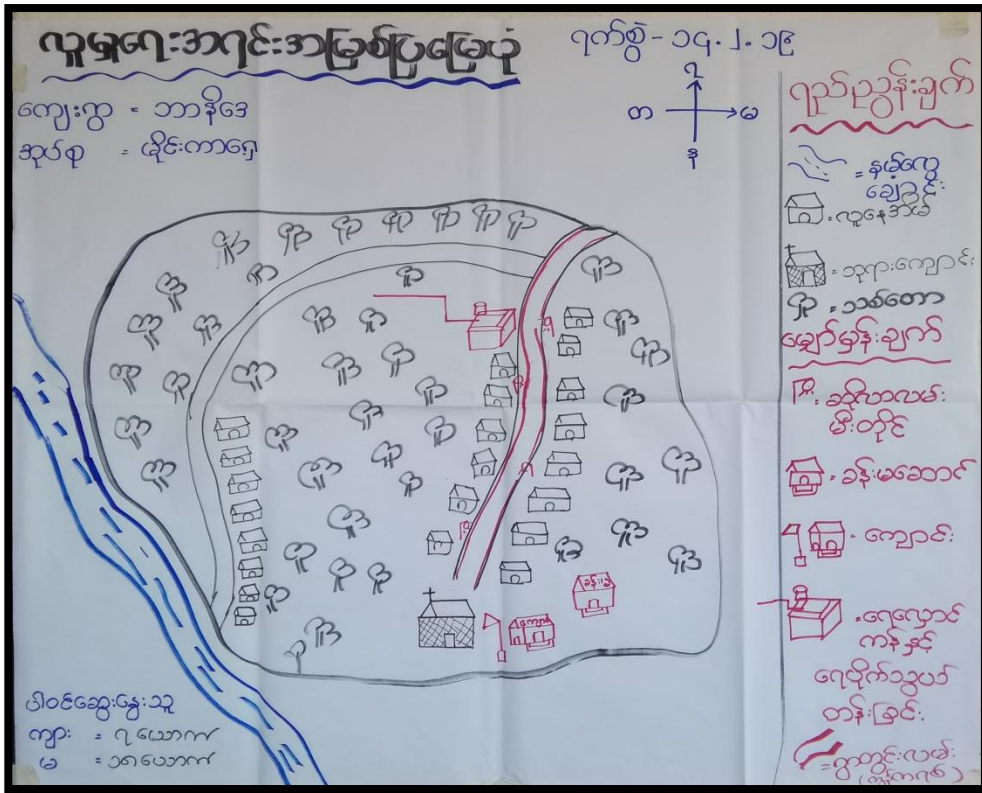 လူမှုရေးအရင်းအမြစ်ပြမြေပုံ
ရက်စွဲ - ၁၄.၂.၁၉
ကျေးရွာ = ဘာနိဒေ
အုပ်စု = ဖိုင်းကာရှေ
န
တ
မ
ရည်ညွှန်းချက်
လူနေအိမ်
= ဘုရားကျောင်း
= သစ်တော
မျှော်မှန်းချက်
= ဆိုလာလမ်း
မီးတိုင်
= ခန်းမဆောင်
= ကျောင်း
= ရေလှောင်
ကန်နှင့်
ရေပိုက်သွယ်
တန်းခြင်း
= ရွာတွင်းလမ်း
ခန်းမ
ကျောင်း
ပါဝင်ဆွေးနွေးသူ
ကျား = ၇ ယောက်
မ = ၁၈ ယောက်